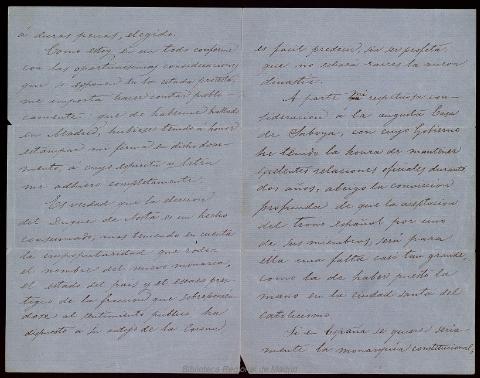 á duras penas, elegido.
Como estoy en un todo conforme
con las oportunísimas consideraciones
que se exponen en la citada protesta,
me importa hacer constar públi-
camente que de haberme hallado
en Madrid, hubiese tenido á honor
estampar mi firma en dicho docu-
mento, á cuyo espíritu y letra
me adhiero completamente.
Es verdad que la elección
del Duque de Aosta es un hecho
consumado, mas teniendo en cuenta
la impopularidad que rodea
el nombre del nuevo monarca,
el estado del país y el escaso pres-
tigio de la fracción que sobreponien-
dose al sentimiento publico ha
dispuesto á su antojo de la Corona
es fácil predecir, sin ser profeta,
que no echará raíces la nueva
dinastía.
A parte mi respetuosa con-
sideración á la augusta Casa
de Saboya, con cuyo Gobierno
he tenido la honra de mantener
excelentes relaciones oficiales durante
dos años, abrigo la convicción
profunda de que la aceptación
del trono español por uno
de sus miembros, será para
ella una falta casi tan grande,
como la de haber puesto la
mano en la ciudad santa del
catolicismo.
Si en España se quiere seria-
mente la monarquía constitucional,
Biblioteca Regional de Madrid